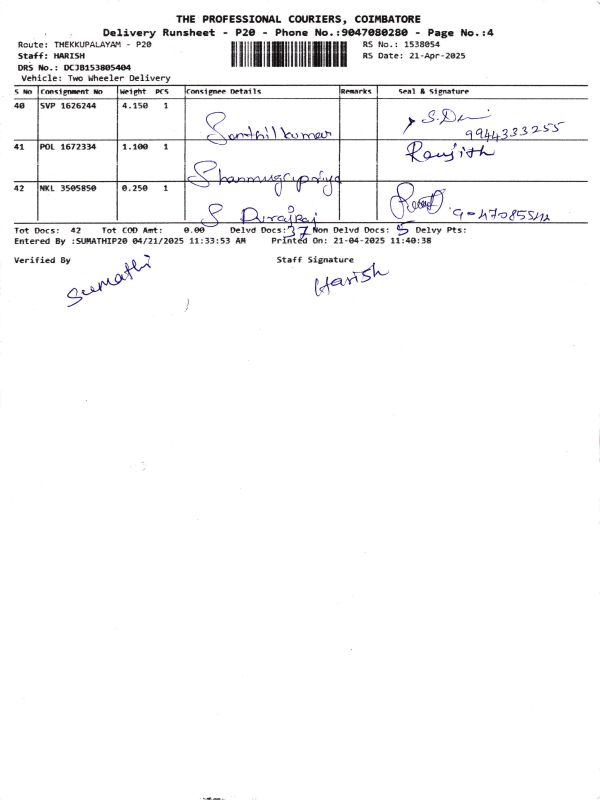 THE PROFESSIONAL COURIERS, COIMBATORE
Delivery Runsheet - P20 - Phone No.:9047080280 - Page No.:4
Route: THEKKUPALAYAM - P20 RS No.: 1538054
Staff: HARISH RS Date: 21-Apr-2025
DRS No.: DCJB153805404
Vehicle: Two Wheeler Delivery
S No Consignment No Weight PCS Consignee Details Remarks Seal & Signature
40 SVP 1626244 4.150 1 Santhilkumar 9944333255
41 POL 1672334 1.100 1 Shanmugapriya Ranjith
42 NKL 3505850 0.250 1 S
Tot Docs: 42 Tot COD Amt: 0.00 Delvd Docs: 37 Non Delvd Docs: 5 Delvy Pts:
Entered By :SUMATHIP20 04/21/2025 11:33:53 AM Printed On: 21-04-2025 11:40:38
Verified By Staff Signature
Sumathi Harish